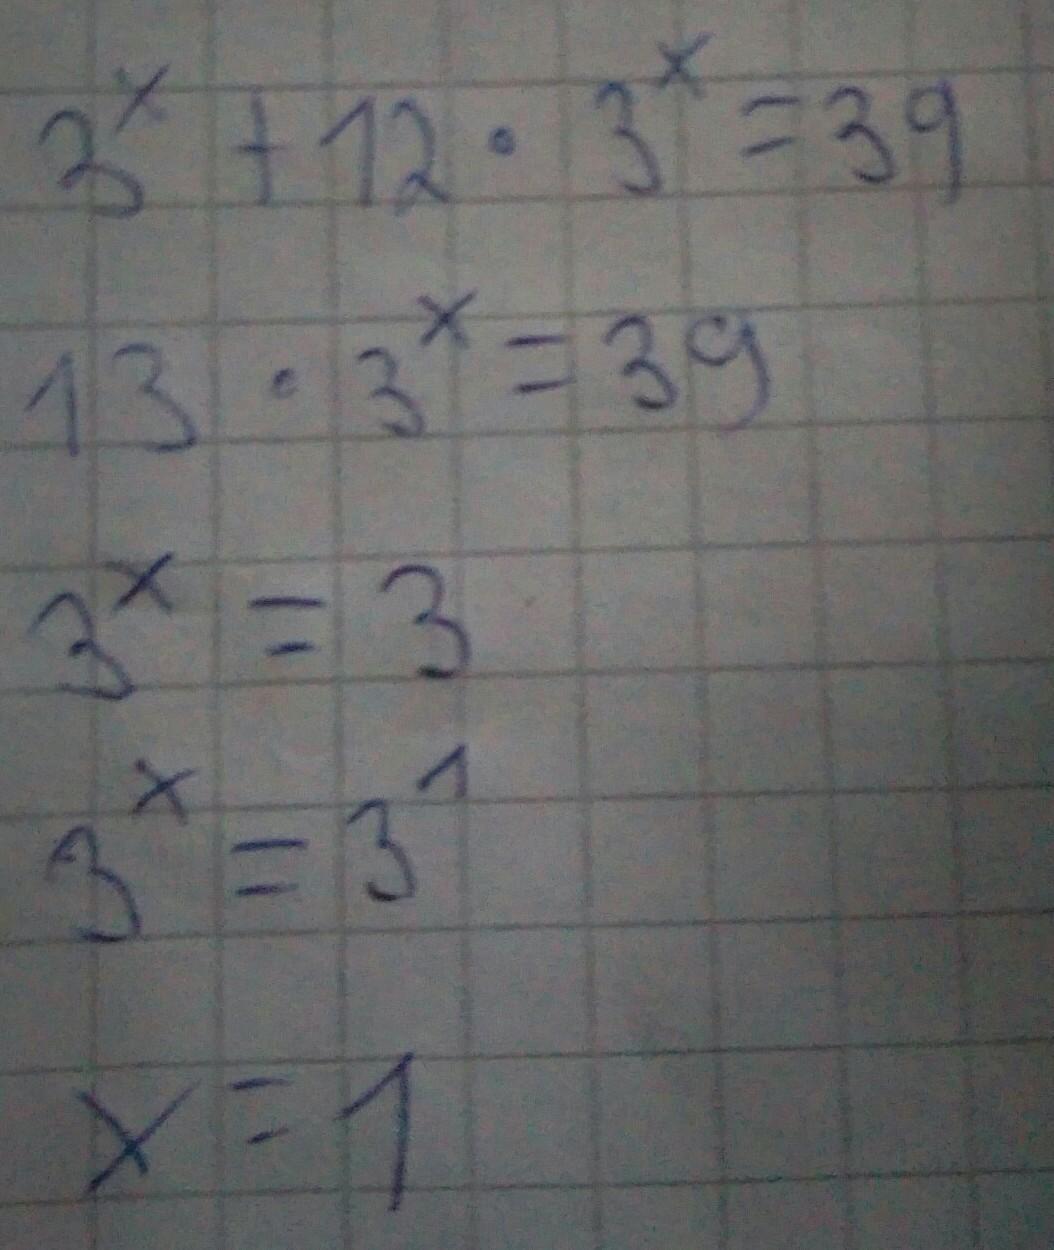 3^x + 12 · 3^x = 39
13 · 3^x = 39
3^x = 3
3^x = 3^1
x = 1